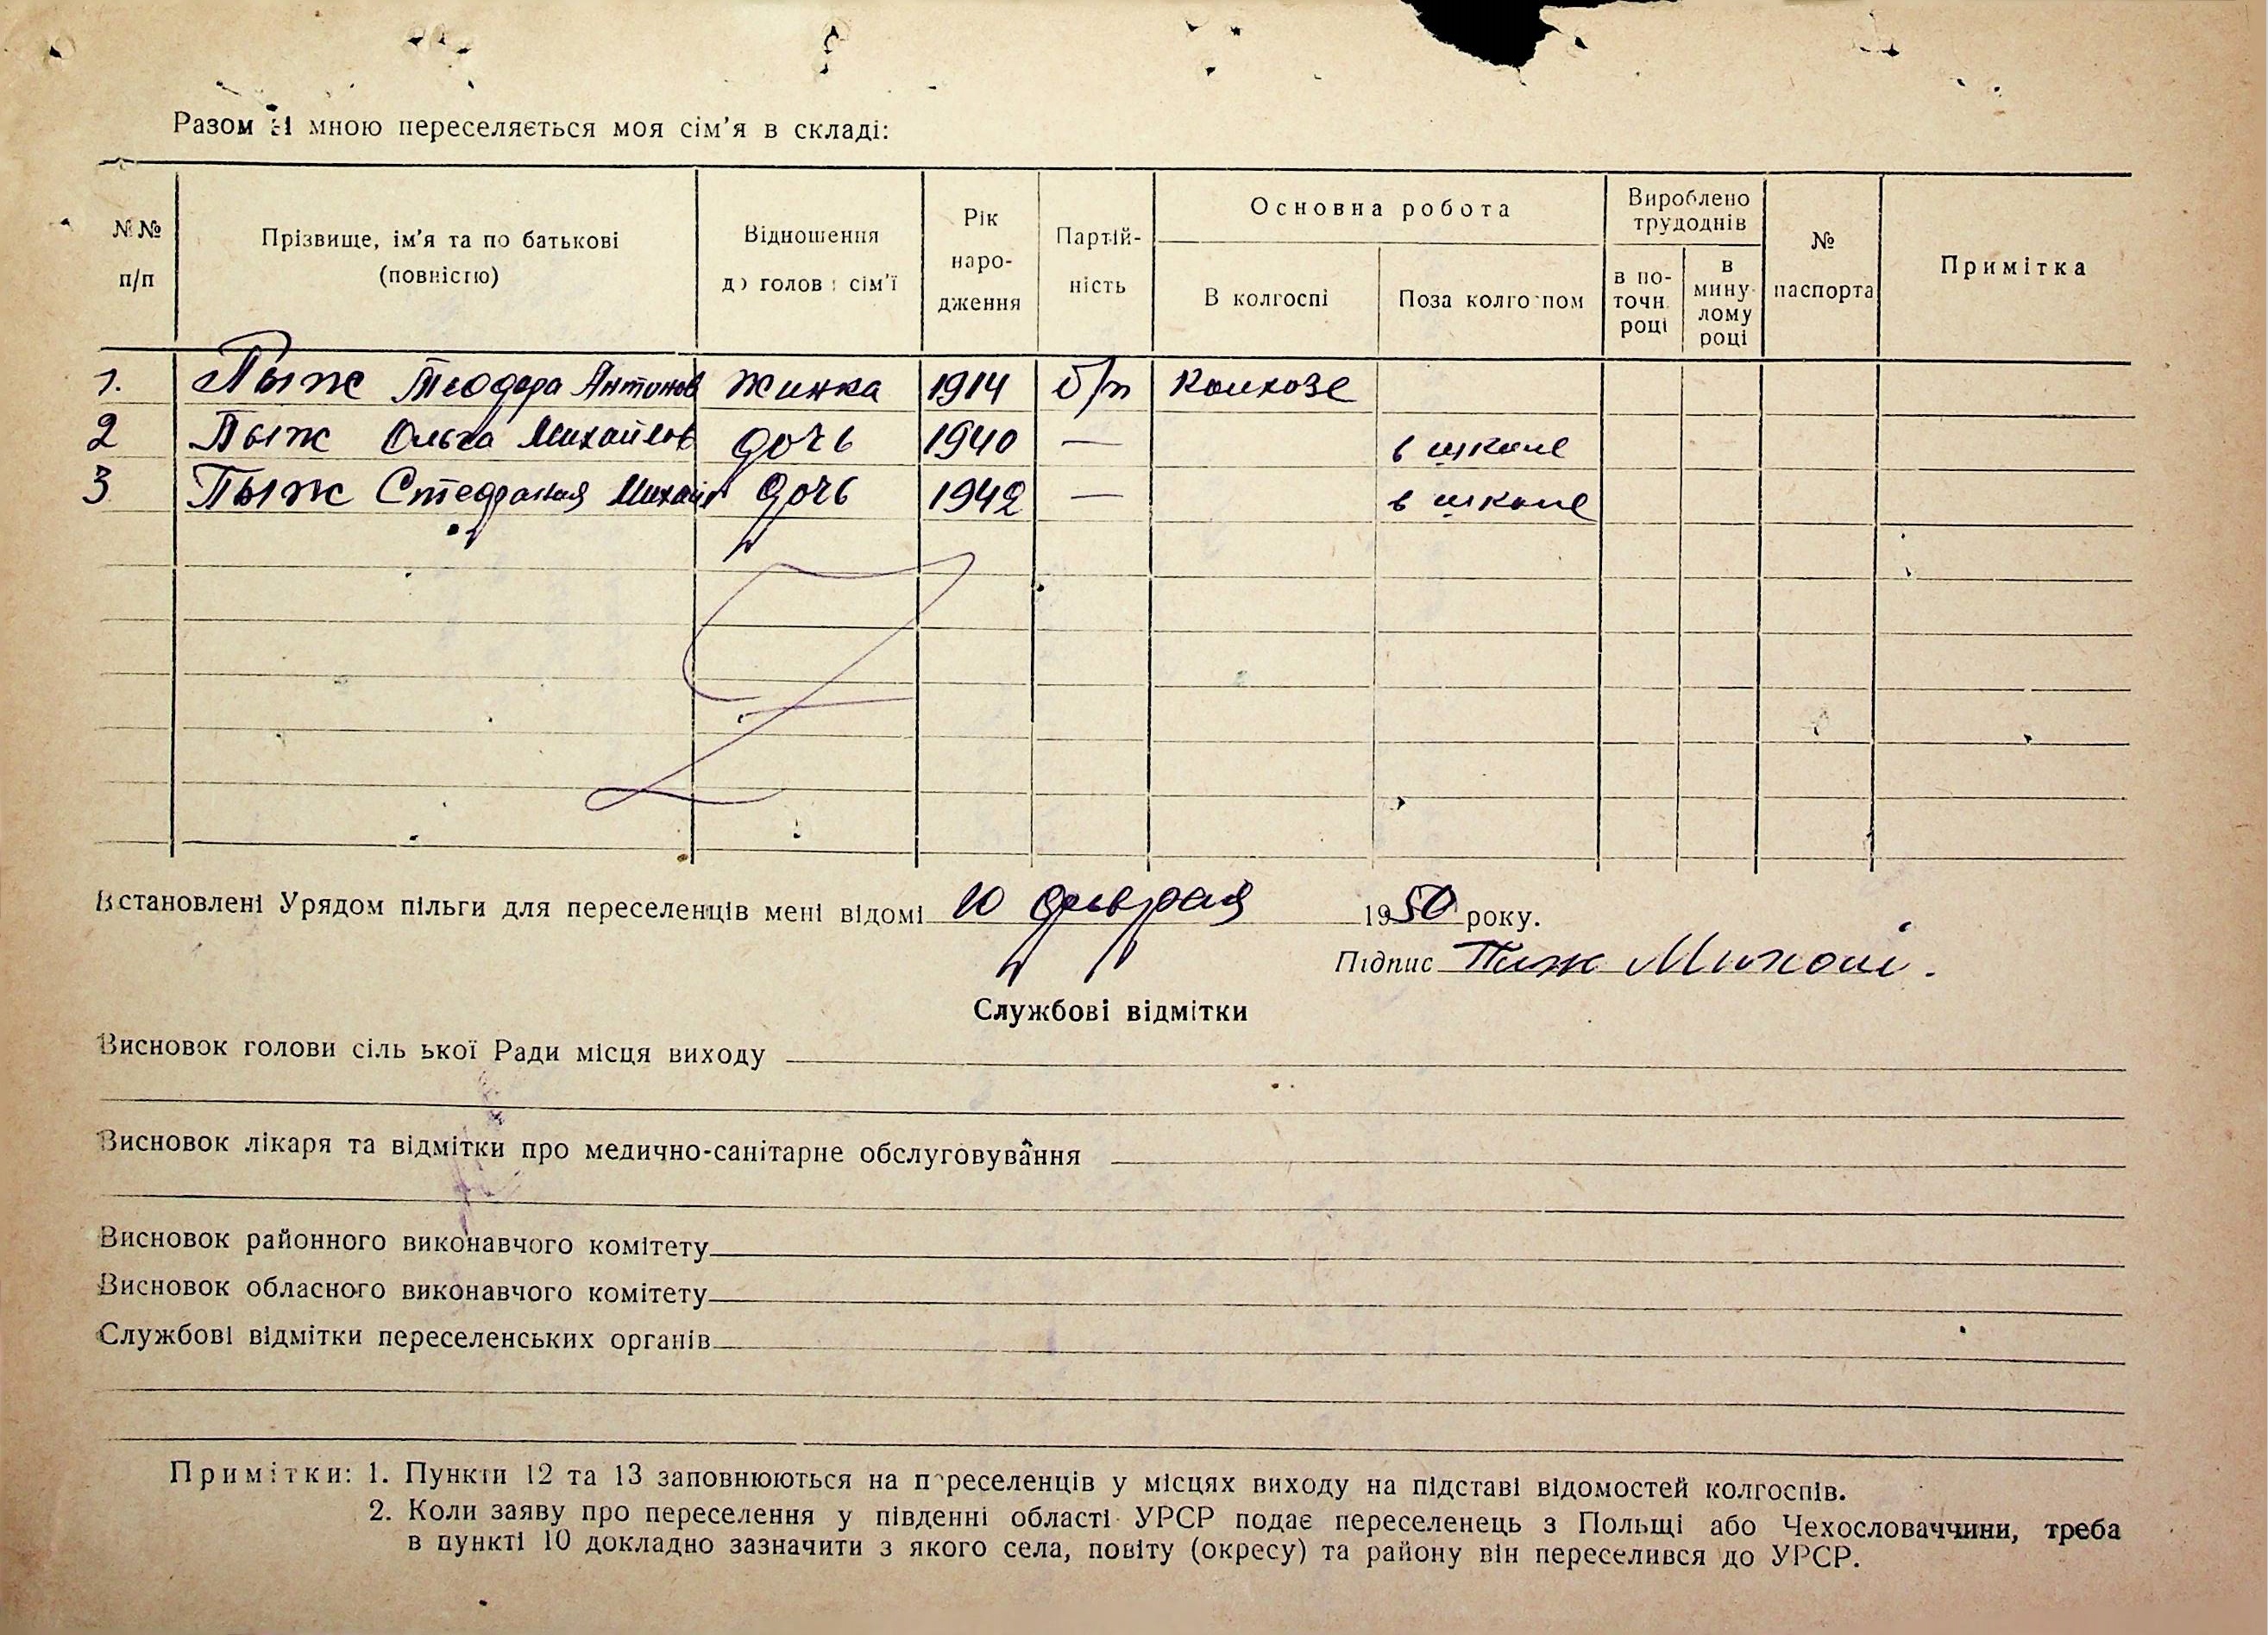 Разом зі мною переселяється моя сім'я в складі:
№№ п/п
Прізвище, ім'я та по батькові (повністю)
Відношення до голови сім'ї
Рік народження
Партійність
Основна робота
В колгоспі
Поза колгоспом
Вироблено трудоднів
в поточн. році
в минулому році
№ паспорта
Примітка
1. Пыж Теодора Антонов жинка 1914 б/п колхозе
2 Пыж Ольга Михайлов дочь 1940 — в школе
3 Пыж Стефания Михайл дочь 1942 — в школе
Встановлені Урядом пільги для переселенців мені відомі 10 февраля 1950 року.
Підпис Пиж
Службові відмітки
Висновок голови сільської Ради місця виходу
Висновок лікаря та відмітки про медично-санітарне обслуговування
Висновок районного виконавчого комітету
Висновок обласного виконавчого комітету
Службові відмітки переселенських органів
Примітки: 1. Пункти 12 та 13 заповнюються на переселенців у місцях виходу на підставі відомостей колгоспів.
2. Коли заяву про переселення у південні області УРСР подає переселенець з Польщі або Чехословаччини, треба
в пункті 10 докладно зазначити з якого села, повіту (окресу) та району він переселився до УРСР.